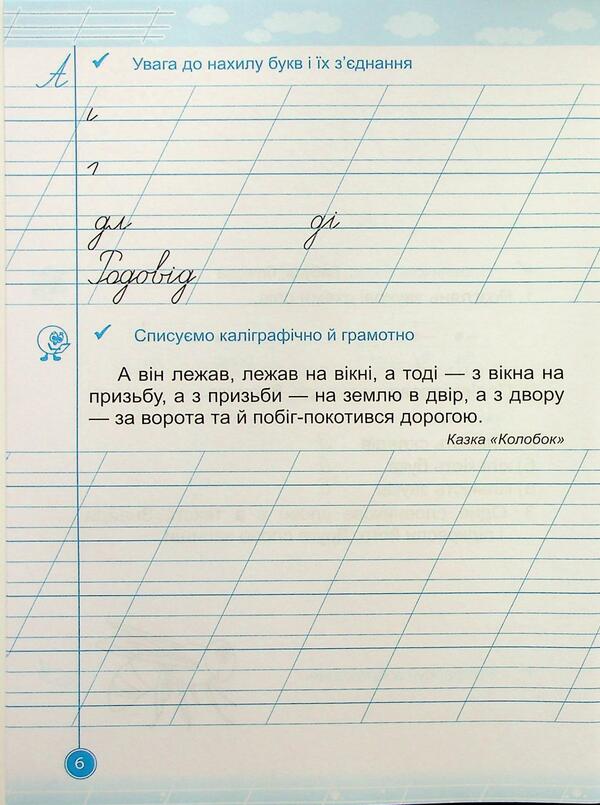 А
Увага до нахилу букв і їх з’єднання
дл ді
Родовід
Списуємо каліграфічно й грамотно
А він лежав, лежав на вікні, а тоді — з вікна на
призьбу, а з призьби — на землю в двір, а з двору
— за ворота та й побіг-покотився дорогою.
Казка «Колобок»
6